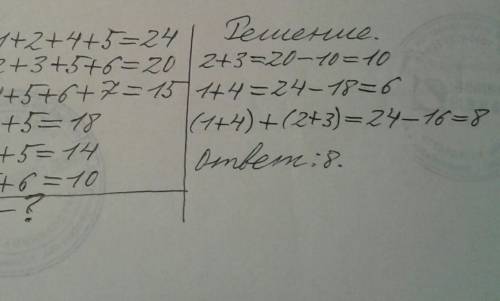 1+2+4+5=24
2+3+5+6=20
4+5+6+7=15
+5=18
+5=14
5+6=10
-?
Решение.
2+3=20-10=10
1+4=24-18=6
(1+4)+(2+3)=24-16=8
ответ: 8.